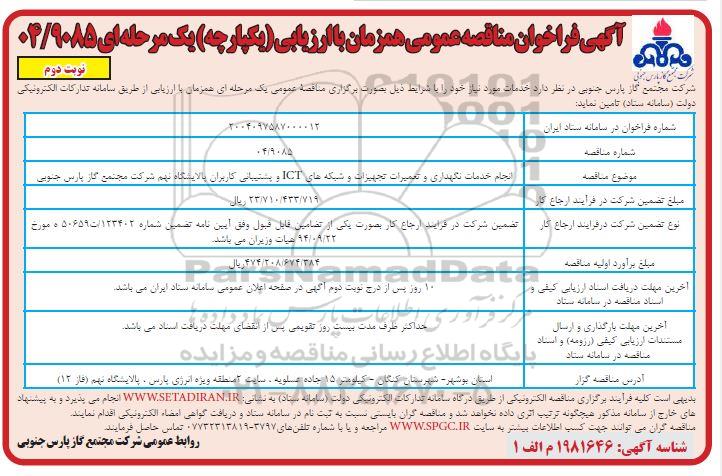 آگهی فراخوان مناقصه عمومی همزمان با ارزیابی (یکپارچه) یک مرحله ای ۰۴/۹۰۸۵
شرکت مجتمع گاز پارس جنوبی
نوبت دوم
شرکت مجتمع گاز پارس جنوبی در نظر دارد خدمات مورد نیاز خود را با شرایط ذیل بصورت برگزاری مناقصهٔ عمومی یک مرحله ای همزمان با ارزیابی از طریق سامانه تدارکات الکترونیکی
دولت (سامانه ستاد) تامین نماید:
شماره فراخوان در سامانه ستاد ایران ۲۰۰۴۰۹۷۵۸۷۰۰۰۰۱۲
شماره مناقصه ۰۴/۹۰۸۵
موضوع مناقصه انجام خدمات نگهداری و تعمیرات تجهیزات و شبکه های ICT و پشتیبانی کاربران پالایشگاه نهم شرکت مجتمع گاز پارس جنوبی
مبلغ تضمین شرکت در فرآیند ارجاع کار ۲۳/۷۱۰/۴۳۳/۷۱۹ ریال
نوع تضمین شرکت درفرایند ارجاع کار تضمین شرکت در فرایند ارجاع کار بصورت یکی از تضامین قابل قبول وفق آیین نامه تضمین شماره ۱۲۳۴۰۲/ت۵۰۶۵۹ ه مورخ
۹۴/۰۹/۲۲ هیات وزیران می باشد.
مبلغ برآورد اولیه مناقصه ۴۷۴/۲۰۸/۶۷۴/۳۸۴ریال
آخرین مهلت دریافت اسناد ارزیابی کیفی و ۱۰ روز پس از درج نوبت دوم آگهی در صفحه اعلان عمومی سامانه ستاد ایران می باشد.
اسناد مناقصه در سامانه ستاد
آخرین مهلت بارگذاری و ارسال حداکثر ظرف مدت بیست روز تقویمی پس از انقضای مهلت دریافت اسناد می باشد.
مستندات ارزیابی کیفی (رزومه) و اسناد
مناقصه در سامانه ستاد
آدرس مناقصه گزار استان بوشهر- شهرستان کنگان - کیلومتر ۱۵ جاده عسلویه ، سایت ۲منطقه ویژه انرژی پارس ، پالایشگاه نهم (فاز ۱۲)
بدیهی است کلیه فرآیند برگزاری مناقصه الکترونیکی از طریق درگاه سامانه تدارکات الکترونیکی دولت (سامانه ستاد) به نشانی: WWW.SETADIRAN.IR انجام می پذیرد و به پیشنهاد
های خارج از سامانه مذکور هیچگونه ترتیب اثری داده نخواهد شد و مناقصه گران بایستی نسبت به ثبت نام در سامانه ستاد و دریافت گواهی امضاء الکترونیکی اقدام نمایند.
مناقصه گران می توانند جهت کسب اطلاعات بیشتر به سایت WWW.SPGC.IR مراجعه و یا با شماره تلفن‌های۳۷۹۷-۰۷۷۳۲۳۱۳۸۱۹ تماس حاصل فرمایند.
شناسه آگهی: ۱۹۸۱۶۴۶ م الف ۱
روابط عمومی شرکت مجتمع گاز پارس جنوبی
ParsNamadData
پایگاه اطلاع رسانی مناقصه و مزایده